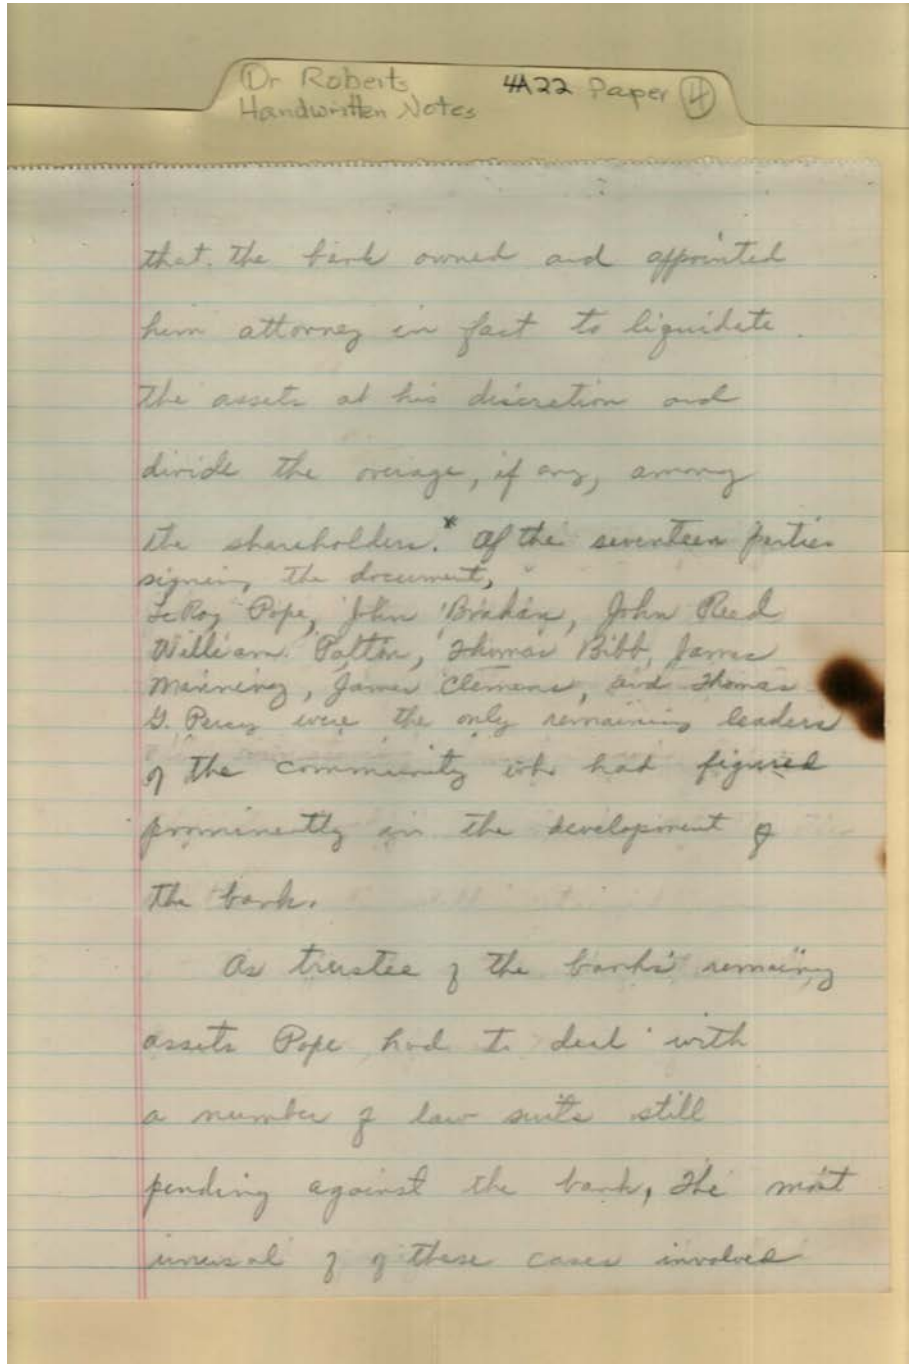 Dr Roberts 4A22 Paper 4
Handwritten Notes
that the bank owned and appointed
him attorney in fact to liquidate
the assets at his discretion and
divide the overage, if any, among
the shareholders.* Of the seventeen parties
signing the document,
LeRoy Pope, John Brahan, John Reed
William Patton, Thomas Bibb, James
Manning, James Clemens, and Thomas
G. Percy were the only remaining leaders
of the community who had figured
prominently in the development of
the bank.
As trustee of the bank's remaining
assets Pope had to deal with
a number of law suits still
pending against the bank, The most
unusal of of these cases involved